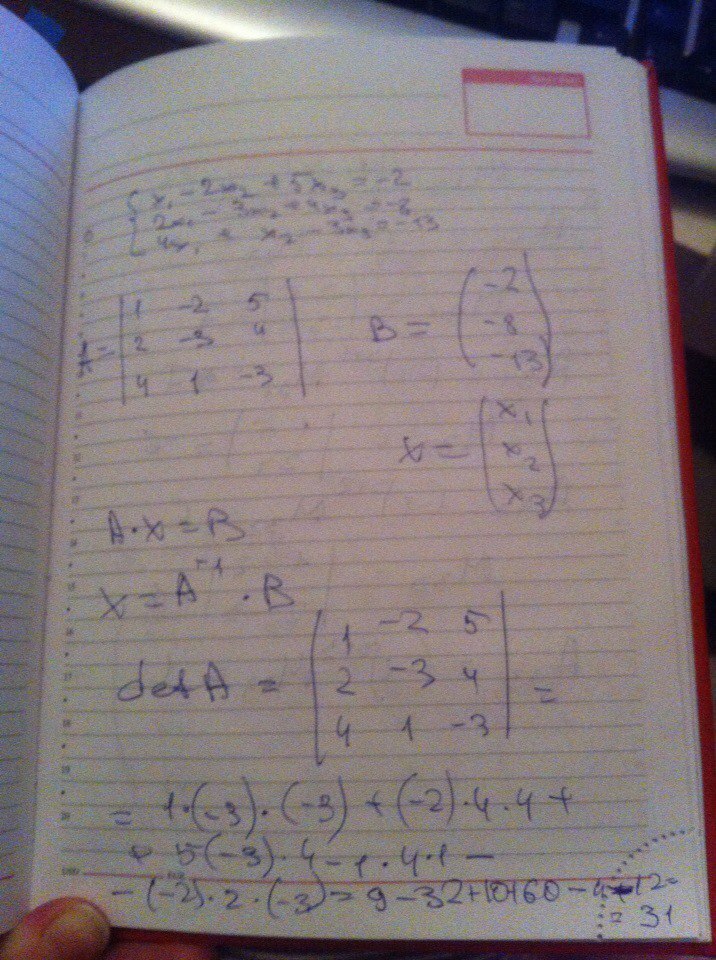 x₁ - 2x₂ + 5x₃ = -2
2x₁ - 3x₂ + 4x₃ = -8
4x₁ + x₂ - 3x₃ = -13
A = | 1 -2 5 |
| 2 -3 4 |
| 4 1 -3 |
B = ( -2
-8
-13 )
X = ( x₁
x₂
x₃ )
A·X = B
X = A⁻¹ · B
det A = | 1 -2 5 |
| 2 -3 4 | =
| 4 1 -3 |
= 1·(-3)·(-3) + (-2)·4·4 +
+ 5(-3)·4 - 1·4·1 -
- (-2)·2·(-3) = 9 - 32 + 10 + 60 - 4 - 12 =
= 31